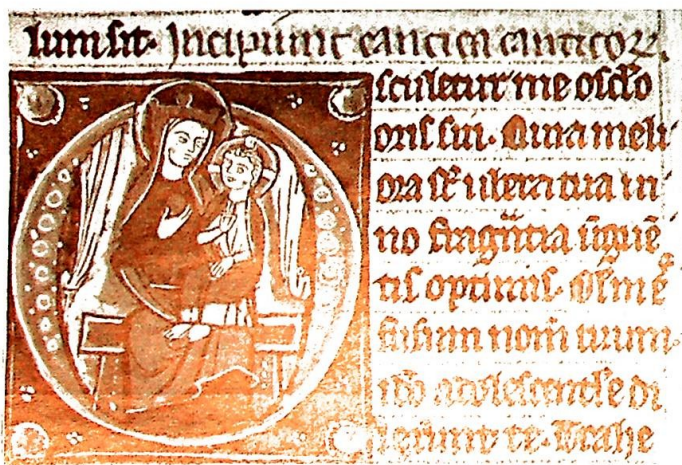 lum sit. Incipiunt cantica canticor
sculetur me osclo
oris sui. Quia meli
ora st ubera tua ui
no fragntia ungue
tis optimis. Oleu e
fusum nom tuum.
ido adolescentule di
lexerunt te. Trahe